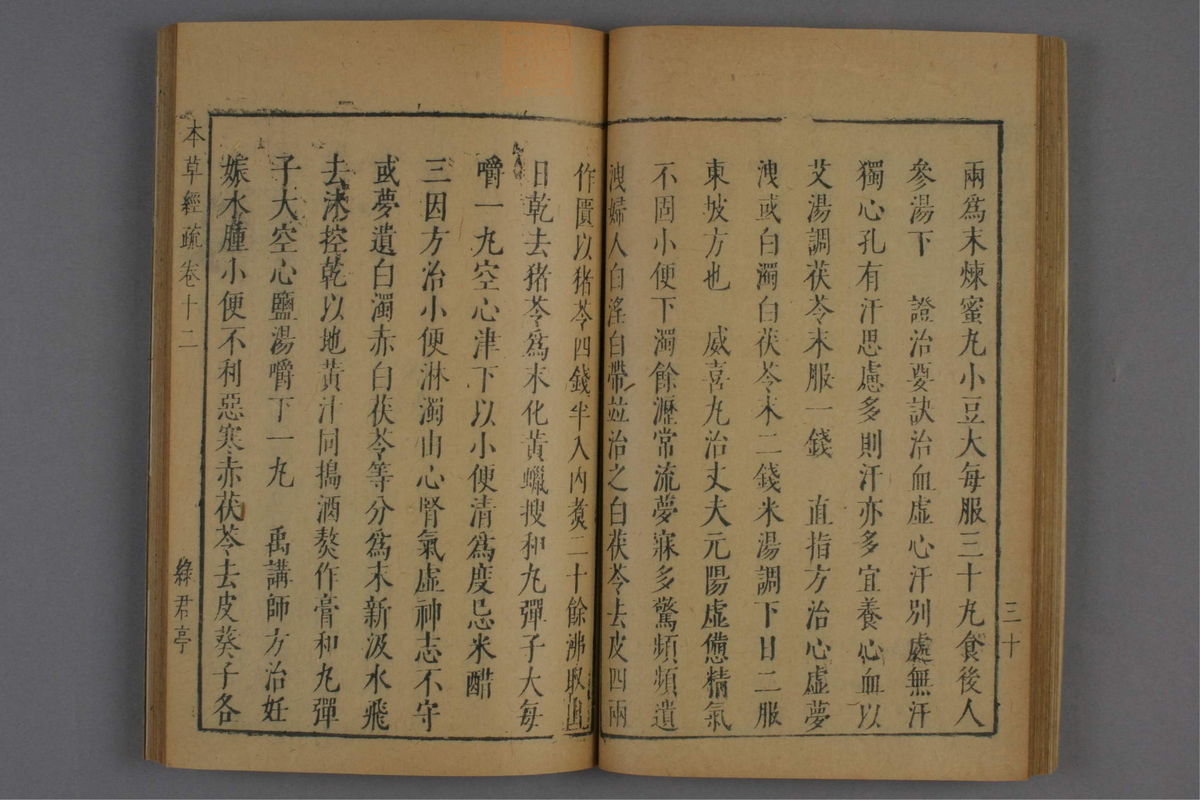 兩爲末煉蜜丸小豆大每服三十丸食後人
參湯下　證治要訣治血虛心汗別處無汗
獨心孔有汗思慮多則汗亦多宜養心血以
艾湯調茯苓末服一錢　直指方治心虛夢
洩或白濁白茯苓末二錢米湯調下日二服
東坡方也　威喜丸治丈夫元陽虛憊精氣
不固小便下濁餘瀝常流夢寐多驚頻頻遺
洩婦人白淫白帶並治之白茯苓去皮四兩
三十
作匱以猪苓四錢半入內煑二十餘沸取出
日乾去猪苓爲末化黃蠟搜和丸彈子大每
嚼一丸空心津下以小便清爲度忌米醋
三因方治小便淋濁由心腎氣虛神志不守
或夢遺白濁赤白茯苓等分爲末新汲水飛
去沫控乾以地黃汁同搗酒熬作膏和丸彈
子大空心鹽湯嚼下一丸　禹講師方治妊
娠水腫小便不利惡寒赤茯苓去皮葵子各
本草經疏卷十二
綠君亭